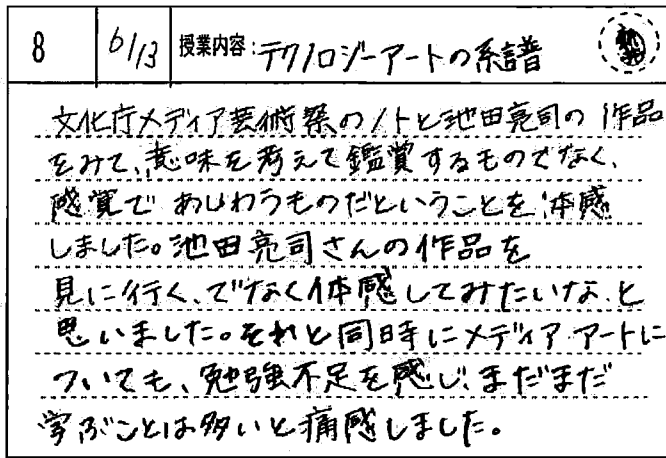 8 6/13 授業内容:テクノロジーアートの系譜
文化庁メディア芸術祭のノトと池田亮司の作品
をみて、意味を考えて鑑賞するものでなく、
感覚であじわうものだということを体感
しました。池田亮司さんの作品を
見に行く、でなく体感してみたいな、と
思いました。それと同時にメディアアートに
ついても、勉強不足を感じ、まだまだ
学ぶことは多いと痛感しました。